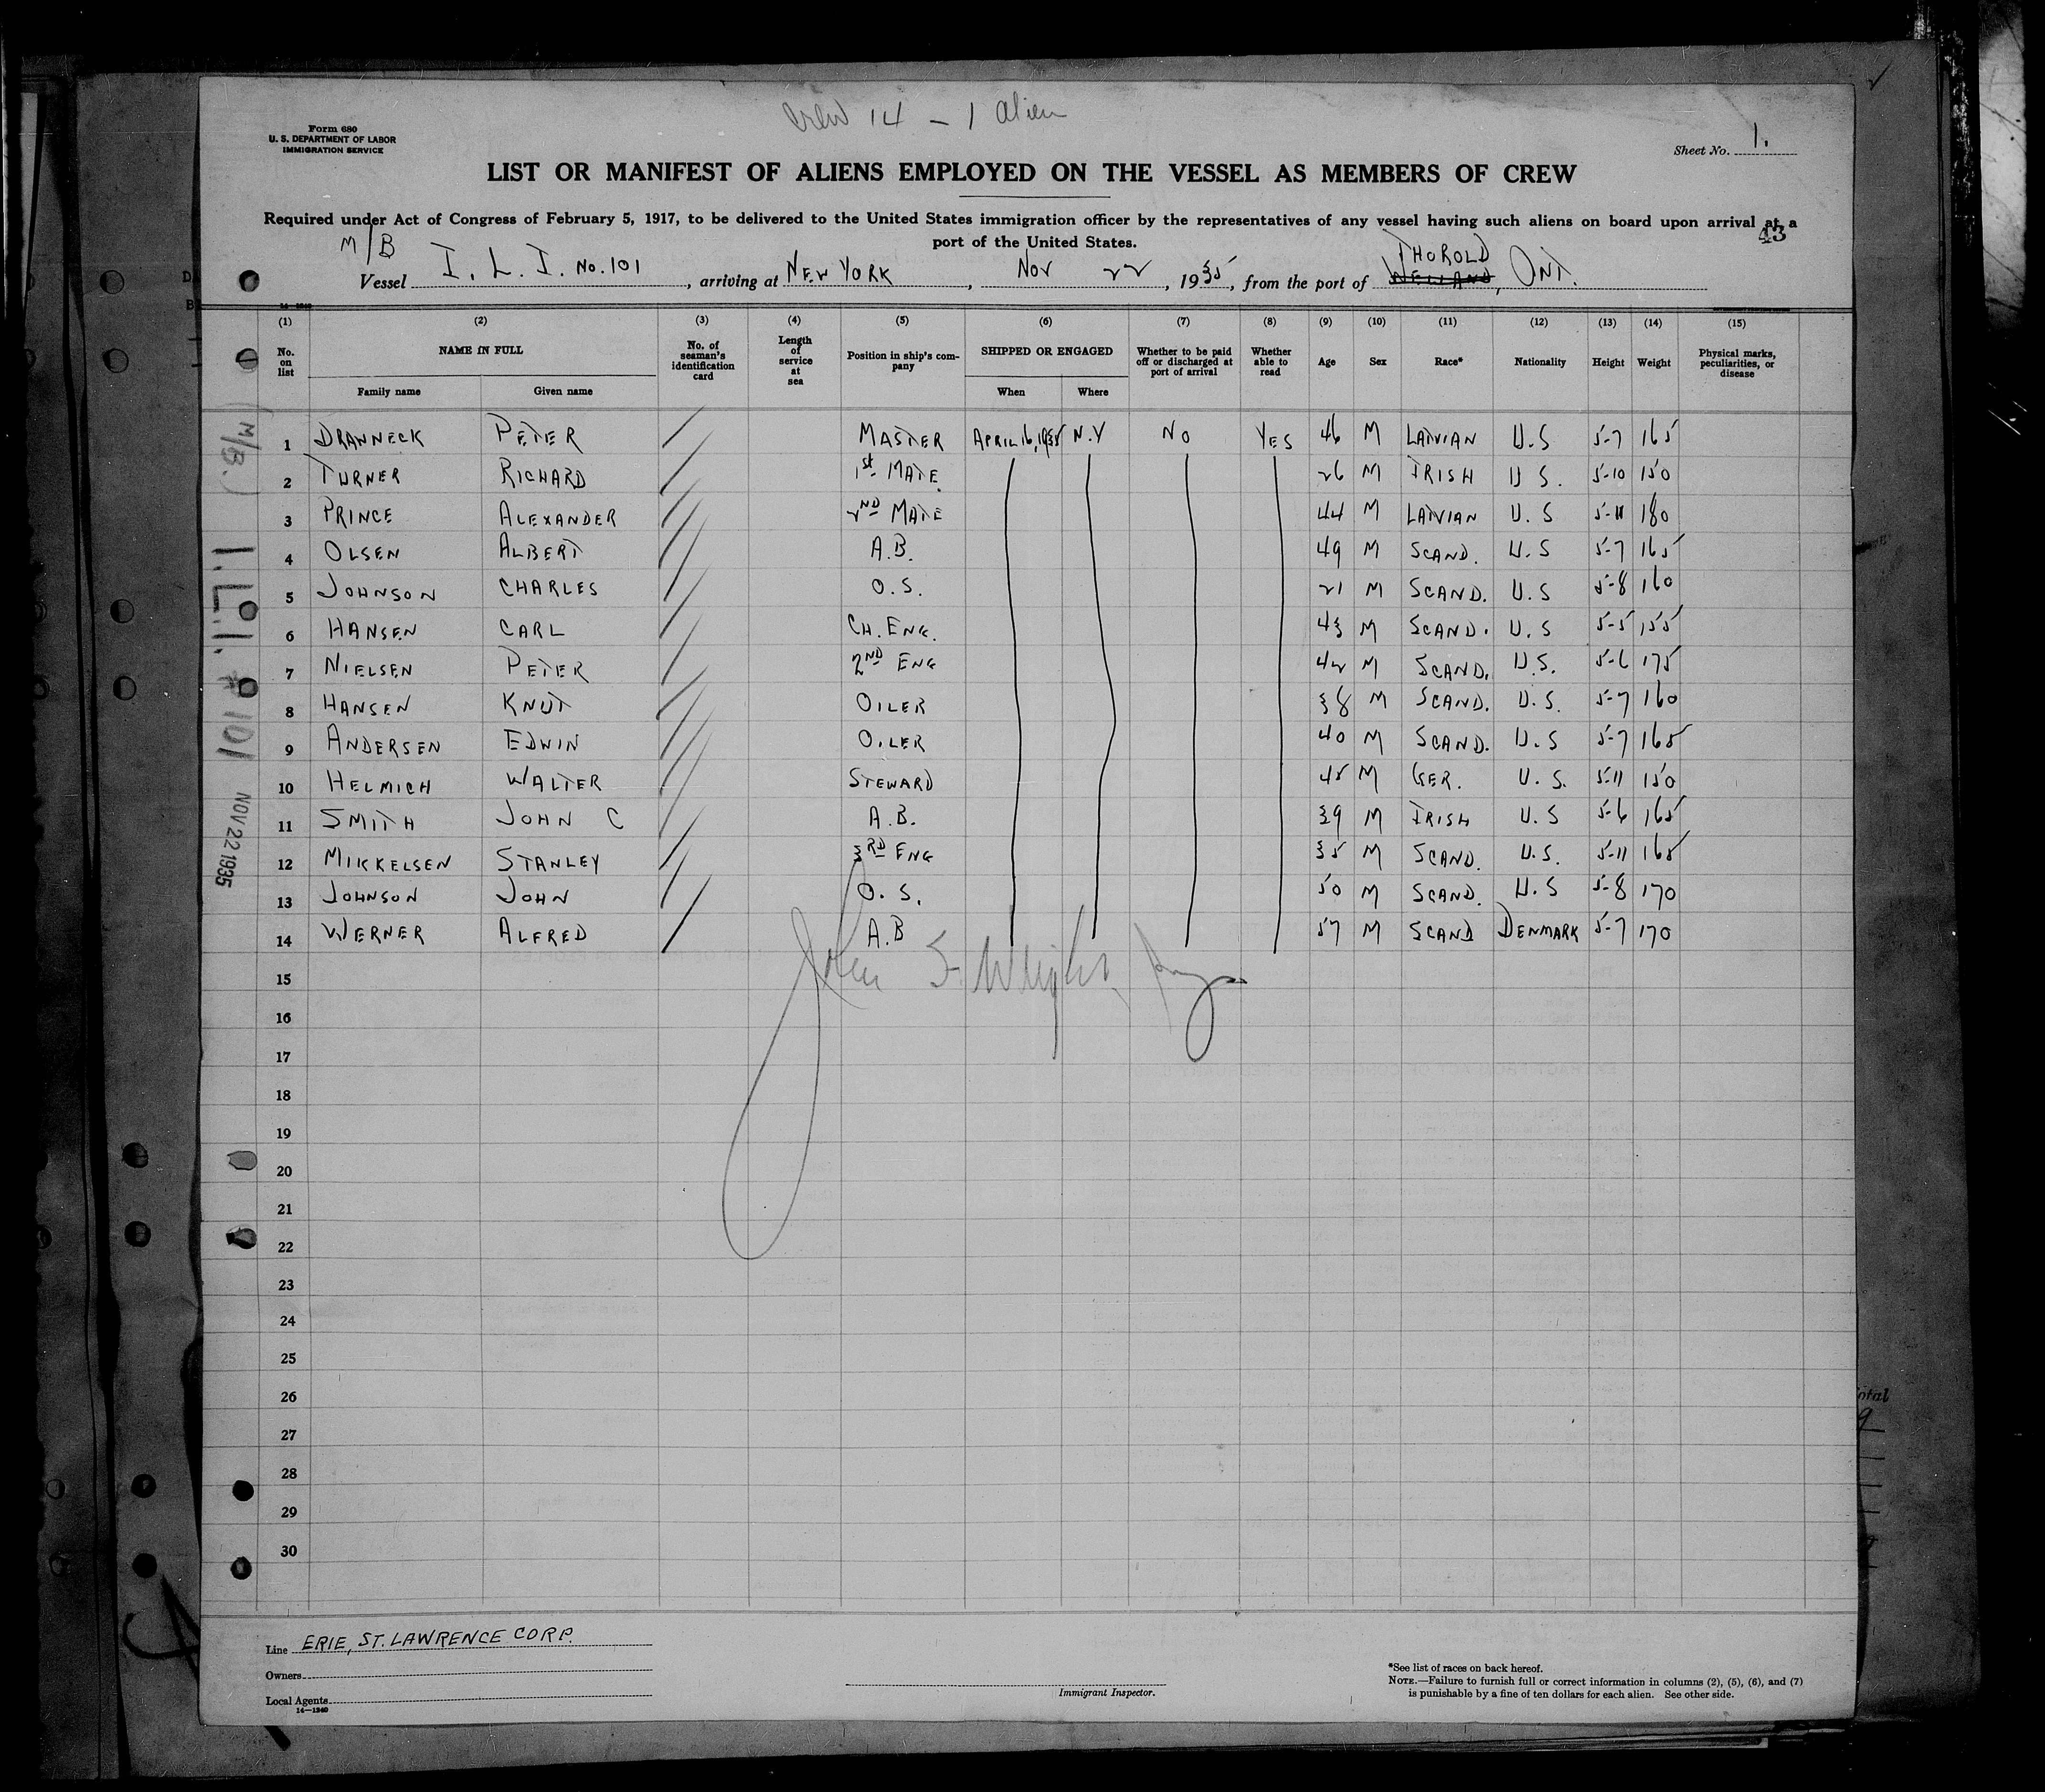 Crew 14 - 1 alien
Form 680
U. S. DEPARTMENT OF LABOR
IMMIGRATION SERVICE
Sheet No. 1.
LIST OR MANIFEST OF ALIENS EMPLOYED ON THE VESSEL AS MEMBERS OF CREW
Required under Act of Congress of February 5, 1917, to be delivered to the United States immigration officer by the representatives of any vessel having such aliens on board upon arrival at a
port of the United States.
43
M/B THOROLD
Vessel I. L. I. No. 101, arriving at NEW YORK, Nov 22, 1935, from the port of WELLAND, ONT.
14-1240
(1) (2) (3) (4) (5) (6) (7) (8) (9) (10) (11) (12) (13) (14) (15)
No. on list NAME IN FULL No. of seaman's identification card Length of service at sea Position in ship's company SHIPPED OR ENGAGED Whether to be paid off or discharged at port of arrival Whether able to read Age Sex Race* Nationality Height Weight Physical marks, peculiarities, or disease
Family name Given name When Where
1 DRANNECK PETER MASTER APRIL 16, 1935 N.Y NO YES 46 M LATVIAN U.S 5-7 165
2 TURNER RICHARD 1st MATE 26 M IRISH U S. 5-10 150
3 PRINCE ALEXANDER 2ND MATE 44 M LATVIAN U. S 5-11 180
4 OLSEN ALBERT A.B. 49 M SCAND. U. S 5-7 165
5 JOHNSON CHARLES O.S. 21 M SCAND. U. S 5-8 160
6 HANSEN CARL CH. ENG. 43 M SCAND. U. S 5-5 155
7 NIELSEN PETER 2ND ENG 42 M SCAND. U.S. 5-6 175
8 HANSEN KNUT OILER 38 M SCAND. U.S. 5-7 160
9 ANDERSEN EDWIN OILER 40 M SCAND. U.S 5-7 165
10 HELMICH WALTER STEWARD 45 M GER. U. S. 5-11 150
11 SMITH JOHN C A.B. 39 M IRISH U. S 5-6 165
12 MIKKELSEN STANLEY 3RD ENG 35 M SCAND. U.S. 5-11 165
13 JOHNSON JOHN O. S. 50 M SCAND. U. S 5-8 170
14 WERNER ALFRED A.B 57 M SCAND DENMARK 5-7 170
15
16
17
18
19
20
21
22
23
24
25
26
27
28
29
30
John S. Wright
(M/B.) I.L.I. #101 NOV 22 1935
Line ERIE, ST. LAWRENCE CORP.
Owners
Local Agents
14-1240
Immigrant Inspector.
*See list of races on back hereof.
NOTE.—Failure to furnish full or correct information in columns (2), (5), (6), and (7)
is punishable by a fine of ten dollars for each alien. See other side.